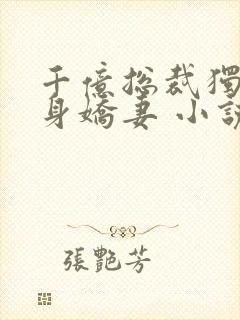 千億總裁獨
身嬌妻 小說
張艷芳